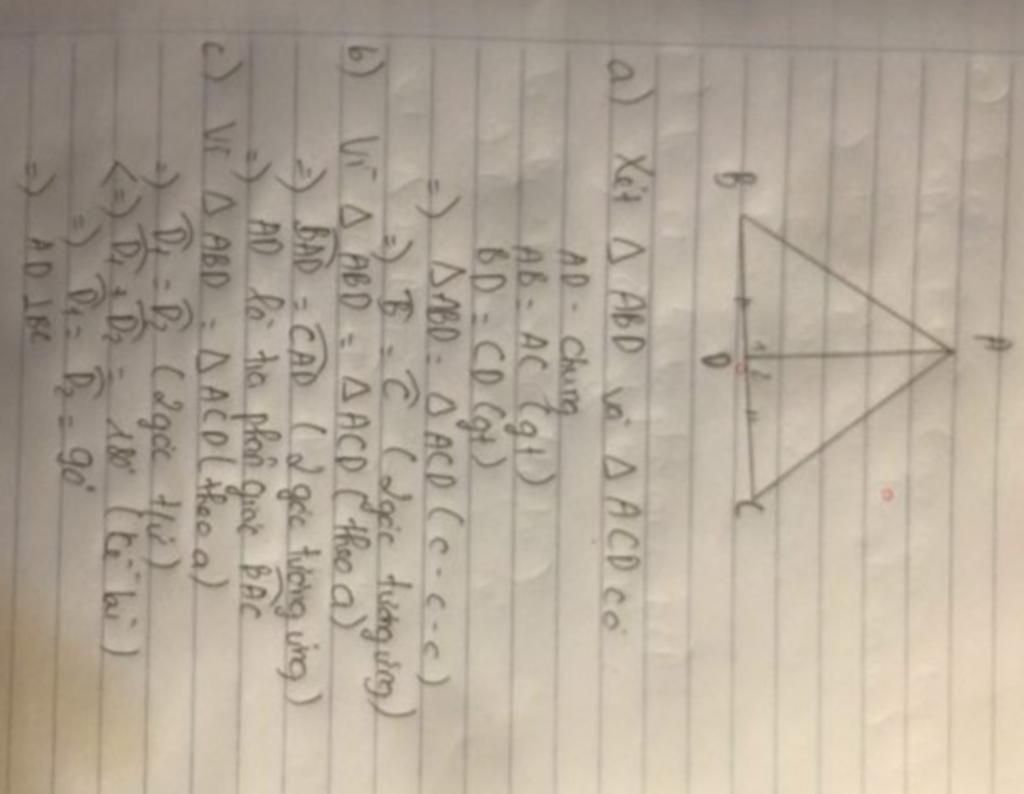 A
1 2
B D C
a) Xét Δ ABD và Δ ACD có
AD - chung
AB = AC (gt)
BD = CD (gt)
=) Δ ABD = Δ ACD (c - c - c)
=) B̂ = Ĉ (2 góc tương ứng)
b) Vì Δ ABD = Δ ACD (theo a)
=) BAD̂ = CAD̂ (2 góc tương ứng)
=) AD là tia phân giác BAĈ
c) Vì Δ ABD = Δ ACD (theo a)
=) D̂₁ = D̂₂ (2 góc t/ứ)
<=) D̂₁ + D̂₂ = 180° (kề bù)
=) D̂₁ = D̂₂ = 90°
=) AD ⊥ BC